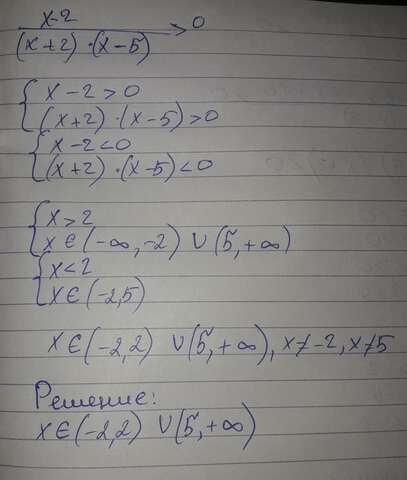 x-2
(x+2)·(x-5) > 0
{ x-2>0
(x+2)·(x-5)>0
{ x-2<0
(x+2)·(x-5)<0
{ x>2
x∈(-∞,-2) ∪ (5,+∞)
{ x<2
x∈(-2,5)
x∈(-2,2) ∪ (5,+∞), x≠-2, x≠5
Решение:
x∈(-2,2) ∪ (5,+∞)